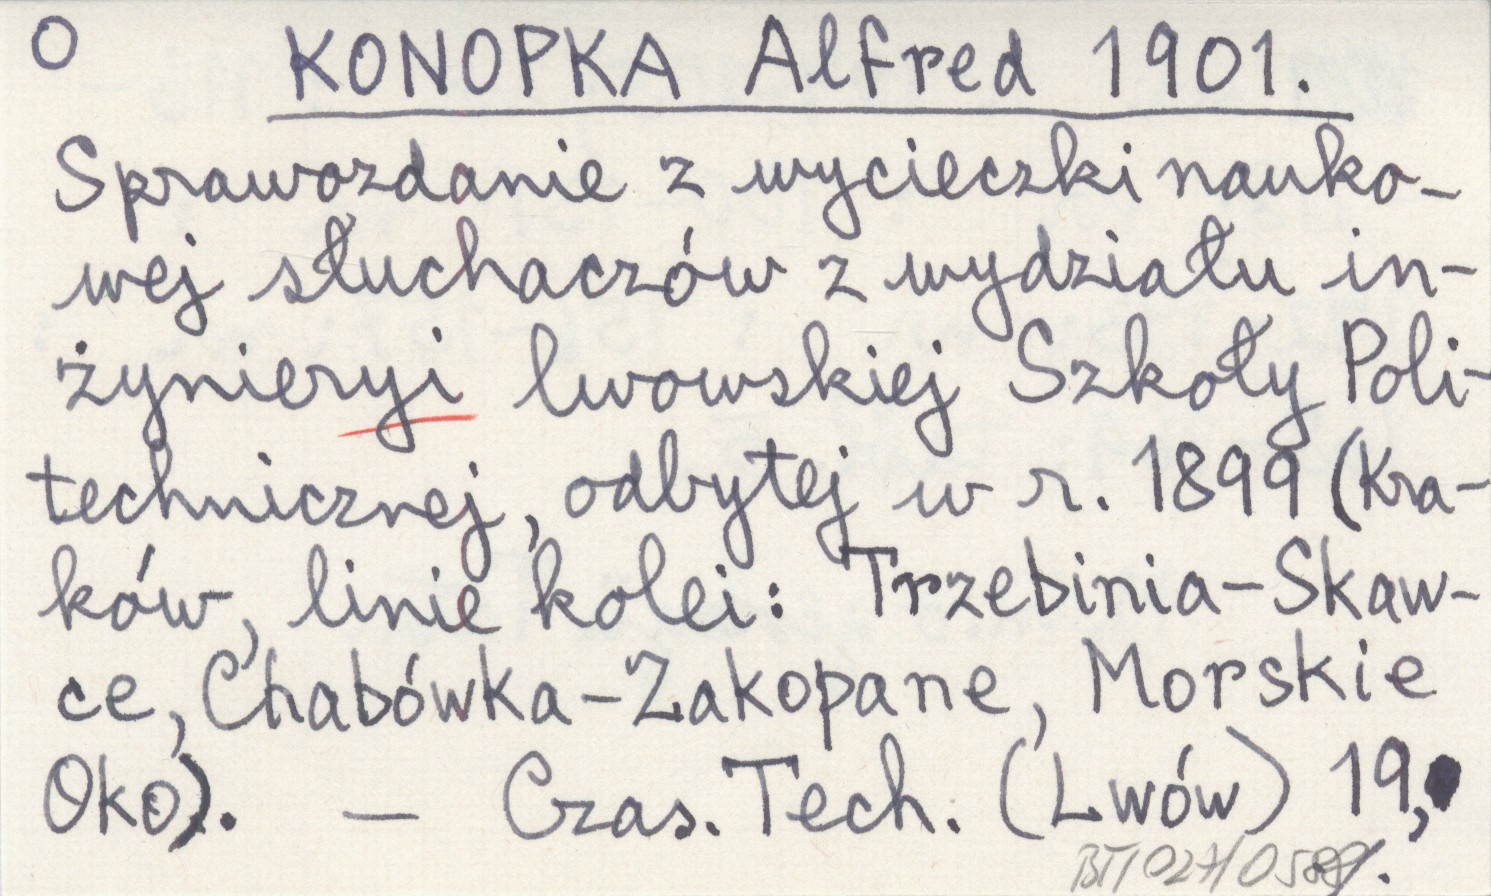 O KONOPKA Alfred 1901.
Sprawozdanie z wycieczki nauko-
wej słuchaczów z wydziału in-
żynieryi lwowskiej Szkoły Poli-
technicznej, odbytej w r. 1899 (Kra-
ków, linie kolei: Trzebinia-Skaw-
ce, Chabówka-Zakopane, Morskie
Oko). — Czas. Tech. (Lwów) 19,